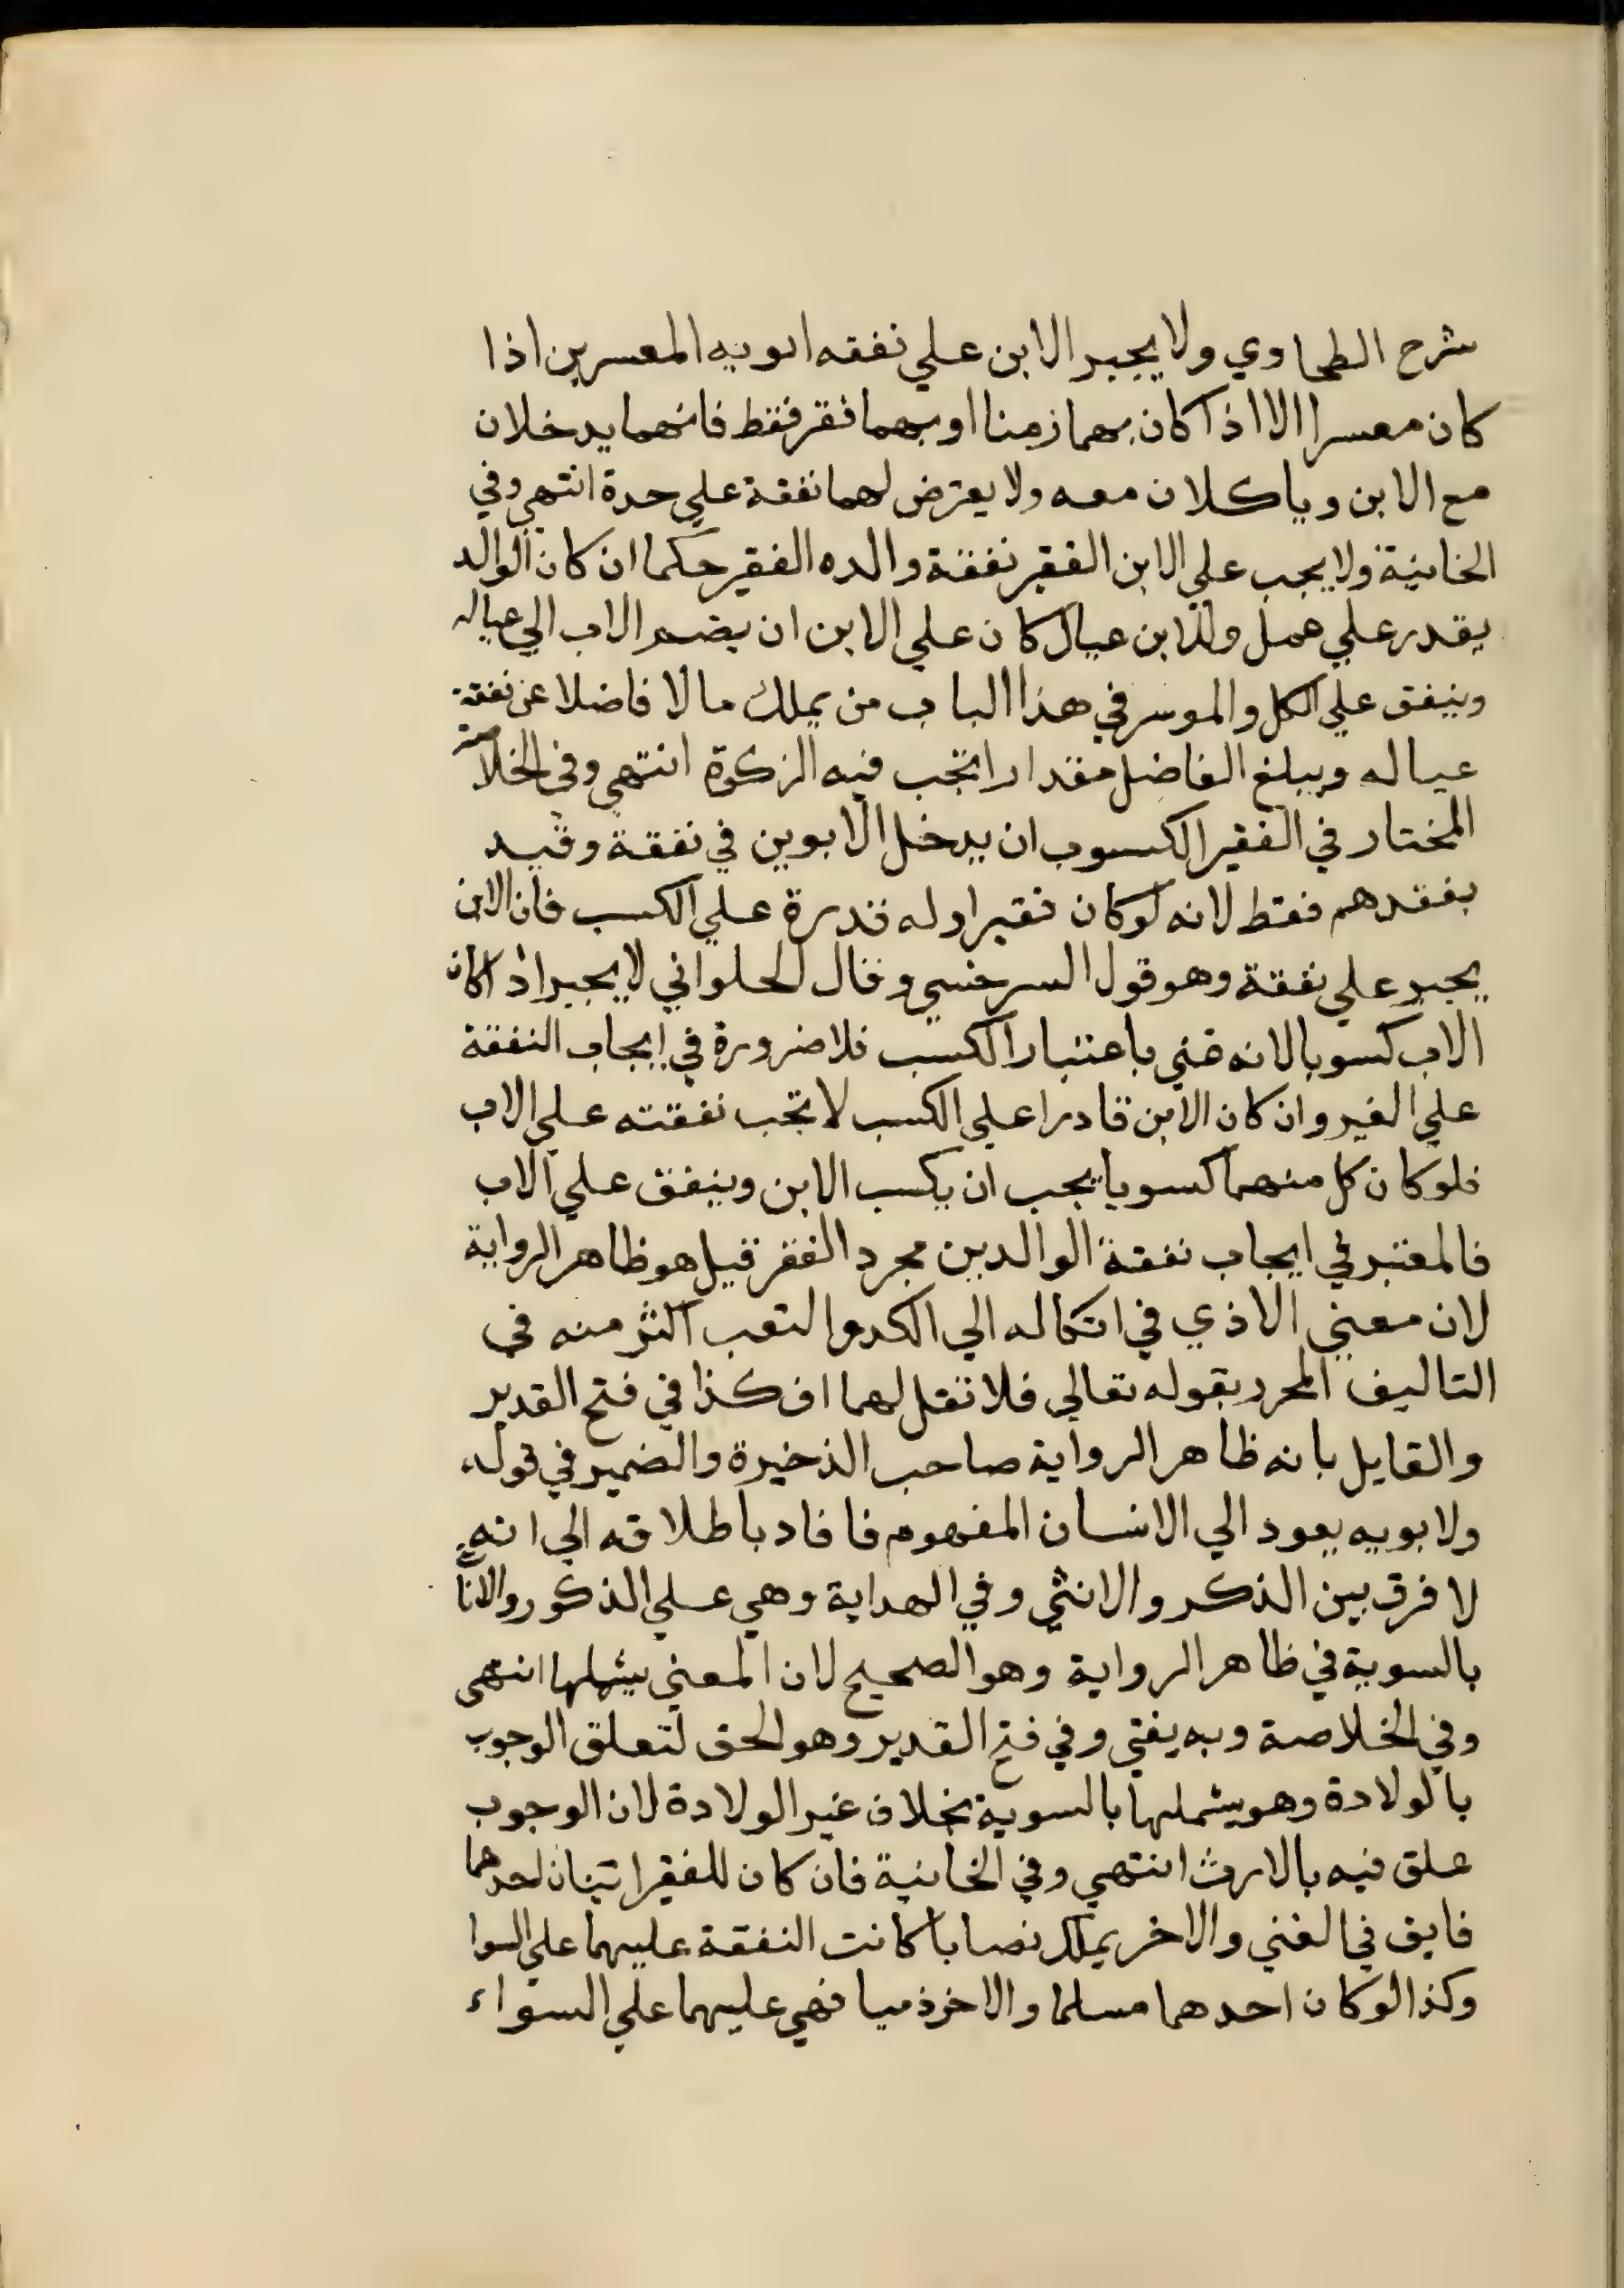 شرح الطحاوي ولا يجبر الابن علي نفقه ابويه المعسرين اذا
كان معسرا الا اذا كان بهما زمنا او بهما فقر فقط فانهما يدخلان
مع الابن وياكلان معه ولا يعرض لهما نفقة علي حدة انتهي وفي
الخانية ولا يجب علي الابن الفقير نفقة والده الفقير حكما ان كان الوالد
يقدر علي عمل وللابن عيال كان علي الابن ان يضم الاب الي عياله
وينفق علي الكل والموسر في هذا الباب من يملك مالا فاضلا عن نفقة
عياله ويبلغ الفاضل مقدارا تجب فيه الزكوة انتهي وفي الخلاصة
المختار في الفقير الكسوب ان يدخل الابوين في نفقة وقيد
بفقدهم فقط لانه لو كان فقيرا وله قدرة علي الكسب فان الابن
يجبر علي نفقة وهو قول السرخسي وقال الحلواني لا يجبر اذا كان
الاب كسوبا لانه غني باعتبار الكسب فلا ضرورة في ايجاب النفقة
علي الغير وان كان الابن قادرا علي الكسب لا تجب نفقته علي الاب
فلو كان كل منهما كسوبا يجب ان يكسب الابن وينفق علي الاب
فالمعتبر في ايجاب نفقة الوالدين مجرد الفقر قيل هو ظاهر الرواية
لان معني الاذي في اتكاله الي الكد والتعب اكثر منه في
التاليف المحرد بقوله تعالي فلا تقل لهما اف كذا في فتح القدير
والقايل بانه ظاهر الرواية صاحب الذخيرة والضمير في قوله
ولابويه يعود الي الانسان المفهوم فافاد باطلاقه الي انه
لا فرق بين الذكر والانثي وفي الهداية وهي علي الذكور والاناث
بالسوية في ظاهر الرواية وهو الصحيح لان المعني يشملها انتهي
وفي الخلاصة وبه يفتي وفي فتح القدير وهو الحق لتعلق الوجوب
بالولادة وهو يشملها بالسوية بخلاف غير الولادة لان الوجوب
علق فيه بالارث انتهي وفي الخانية فان كان للفقير ابنان احدهما
فايق في الغني والاخر يملك نصابا كانت النفقة عليهما علي السوا
وكذا لو كان احدهما مسلما والاخر ذميا فهي عليهما علي السواء